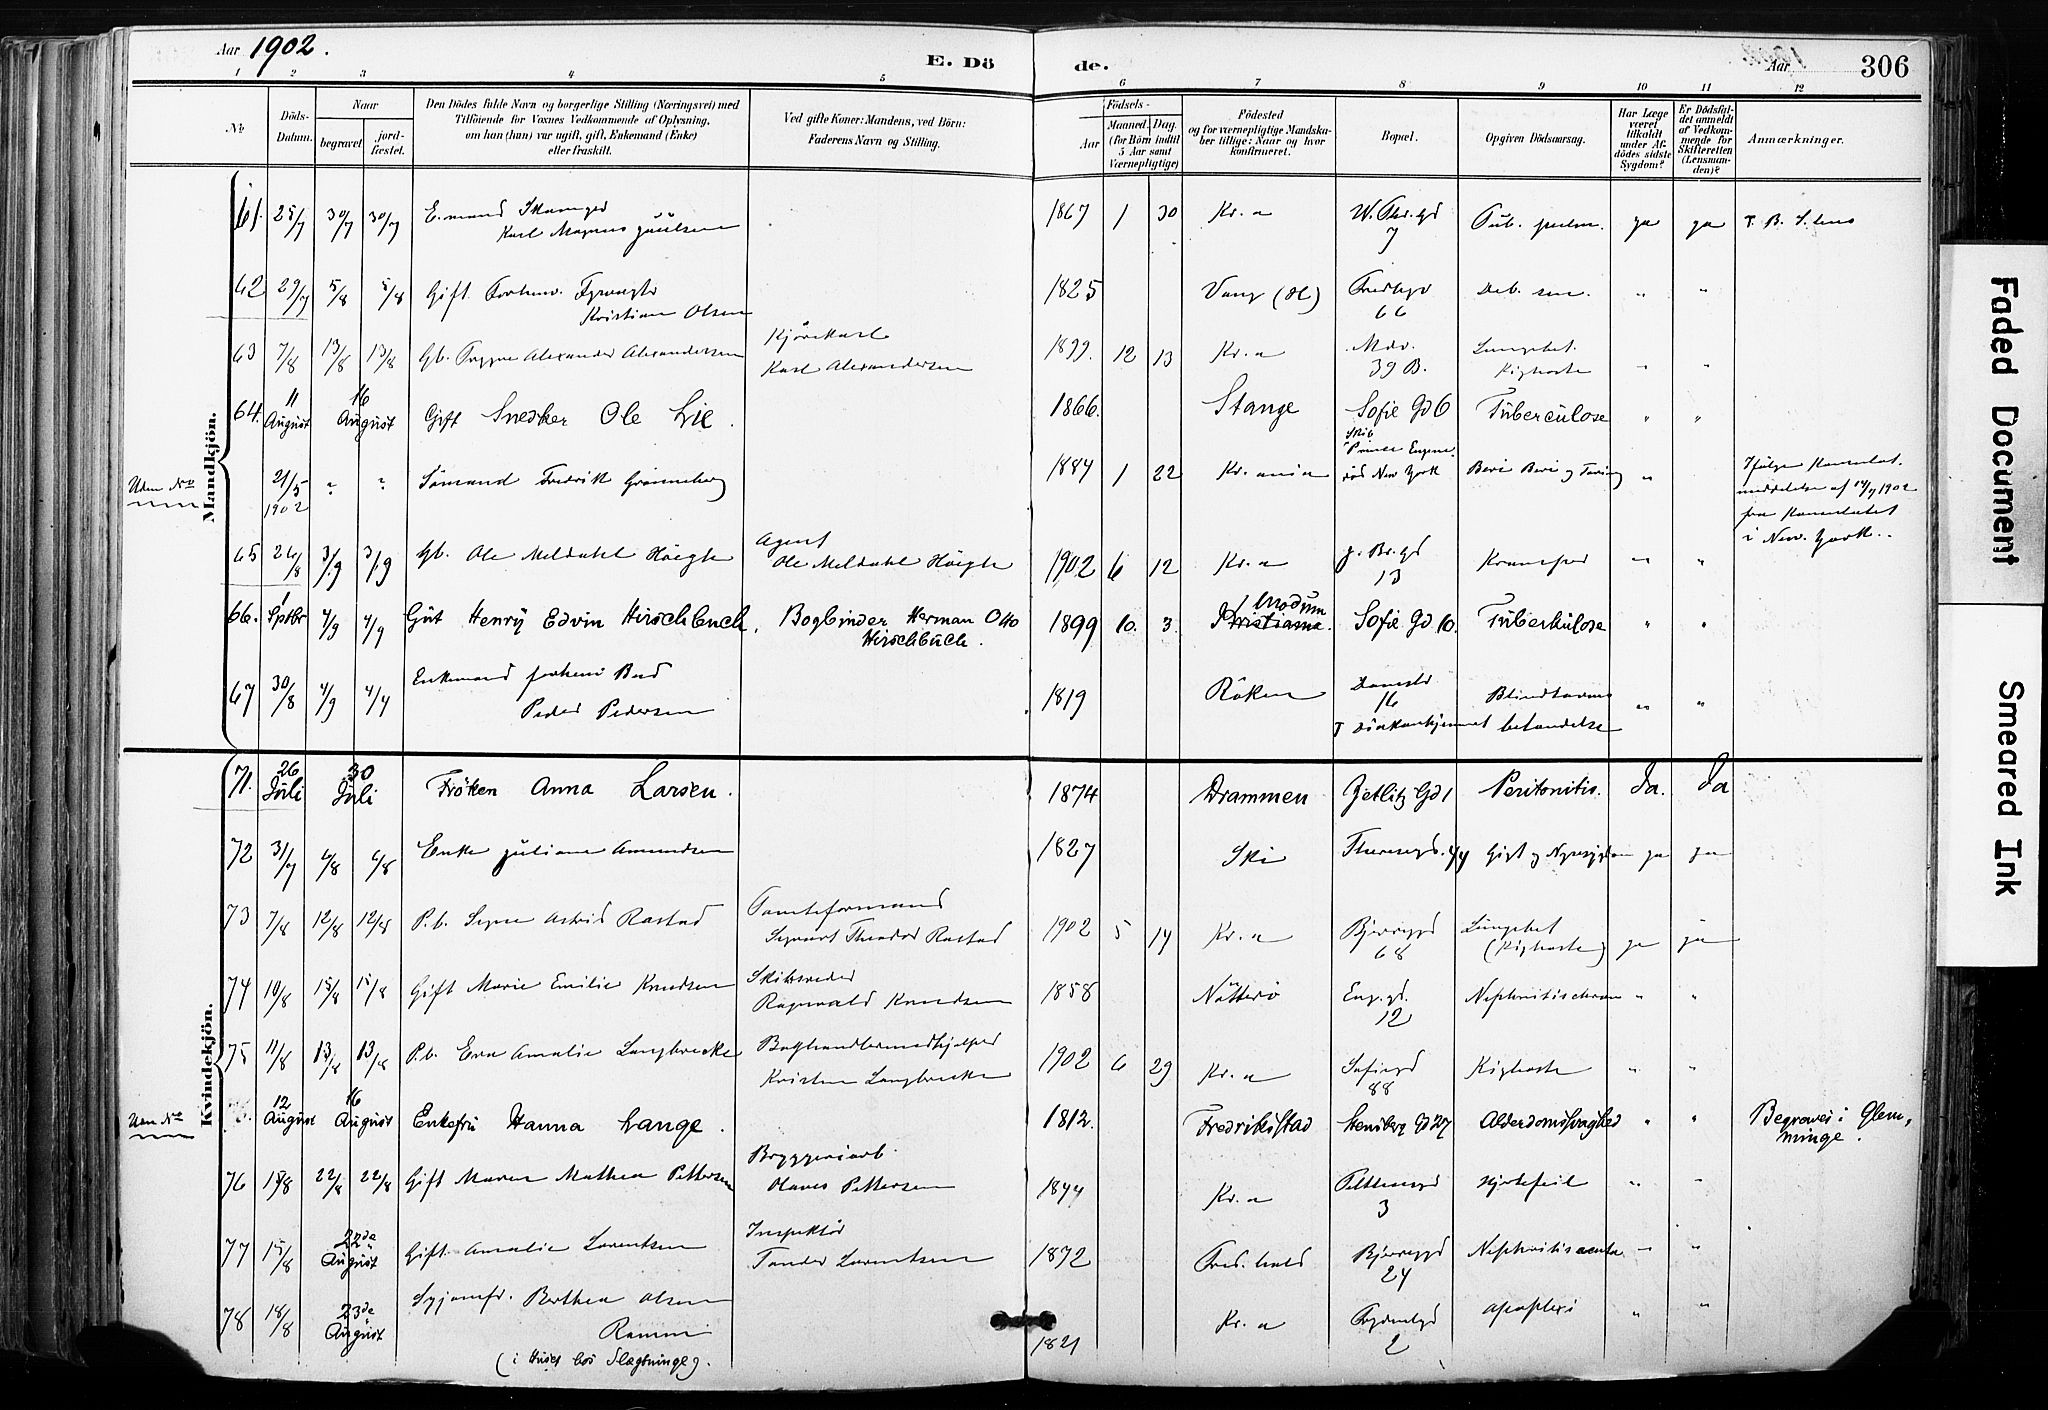 Aar 1902.
E. Dö de.
Aar
306
1 2 3 4 5 6 7 8 9 10 11 12
No
Döds-Datum.
Naar
begravet
jord-fæstet.
Den Dödes fulde Navn og borgerlige Stilling (Næringsvei) med
Tilföiende for Voxnes Vedkommende af Oplysning,
om han (hun) var ugift, gift, Enkemand (Enke)
eller fraskilt.
Ved gifte Koner: Mandens, ved Börn:
Faderens Navn og Stilling.
Födsels-
Aar
Maaned. Dag
(for Börn indtil
5 Aar samt
Værnepligtige)
Födested
og for værnepligtige Mandska-
ber tillige: Naar og hvor
konfirmeret.
Bopæl.
Opgiven Dödsaarsag.
Har Læge
været
tilkaldt
under Af-
dödes sidste
Sygdom?
Er Dödsfal-
det anmeldt
af Vedkom-
mende for
Skifteretten
(Lensman-
den)?
Anmærkninger.
Mandkjön.
61. 25/7 30/7 30/7 E.mand
Karl Magnus 1867 1 30 Kr.a 7 Tub. pulm. ja ja
62 29/7 5/8 5/8 Gift Forhenv.
Kristian Olsen 1825 Vang 66 Deb. sen. " "
63 7/8 13/8 13/8 Gb. Trygve Alexander Alexandersen Kjörekarl
Karl Alexandersen 1899. 12 13 Kr.a 39 B. Lungebet.
Kighoste " "
64. 11 August 16 August Gift Snedker Ole Lie. 1866. Stange Sofie Gd 6 Tuberculose " "
Uden No 21/5 1902 " " Sömand Fredrik Grönneberg 1884 1 22 Kr.ania Skib
Prince Eugene
ved New York Beri Beri og "
Ifölge Konsulat.
meddelelse af 1902
fra Konsulatet
i New York.
65 26/8 3/9 3/9 Gb. Ole Meldahl Höegh Agent
Ole Meldahl Höegh 1902 6 12 Kr.a 13 " "
66. 1 Sptbr 4/9 4/9 Gut Henry Edvin Hirschbuch. Bogbinder Herman Otto
Hirschbuch. 1899 10. 3. Modum
Kristiania. Sofie Gd 10. Tuberkulose " "
67 30/8 4/9 Enkemand forhenv Bud
Peder Pedersen 1819 Röken 16 Blindtarms
betændelse " "
Kvindekjön.
71. 26 Juli 30 Juli Fröken Anna Larsen. 1874 Drammen Zetlitz Gd 1 Peritonitis. Ja. Ja
72 31/7 6/8 6/8 Enke Juliane Amundsen 1827 Ski Theresegd. Gigt og Nyresygdom ja ja
73 7/8 12/8 12/8 P.b. Signe Astrid Rastad Tomteformand
Sigvart Theodor Rastad 1902 5 14 Kr.a 68 Lungebet
(Kighoste) ja ja
74 10/8 15/8 15/8 Gift Marie Emilie Knudsen Skibsreder
Ragnvald Knudsen 1858 Nötterö Eug.gd.
12 Nephritis chron " "
75 11/8 13/8 13/8 P.b. Eva Amalie Langbrekke Boghandlermedhjælper
Kristian Langbrekke 1902 6 29 Kr.a Sofiegd
88 Kighoste " "
Uden No 12 August 16 August Enkefru Hanna Lange. 1812. Fredrikstad Alderdomssvaghed " " Begraves i Glem-
minge.
76 15/8 22/8 22/8 Gift Maren Mathea Pettersen Bryggeriarb.
Olaves Pettersen 1844 Kr.a
3 Hjertefeil " "
77 15/8 22de August Gift. Amalie Lorentsen Inspektör
Lorentsen 1872 Fred.hald 24 Nephritis acuta " "
78 18/8 23de August Syjomfr. Berthea Olsen
(i Huset hos Slægtninge). 1821 Kr.a
2 Apoplexi " "
Faded Document
Smeared Ink